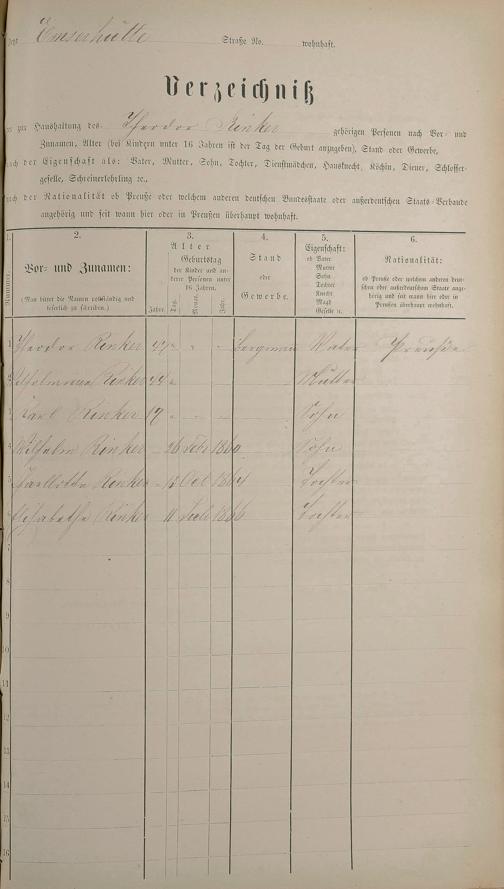 Emserhütte Straße No. wohnhaft.
Verzeichniß
zur Haushaltung des Theodor Rinker gehörigen Personen nach Vor- und
Zunamen, Alter (bei Kindern unter 16 Jahren ist der Tag der Geburt anzugeben), Stand oder Gewerbe,
nach der Eigenschaft als: Vater, Mutter, Sohn, Tochter, Dienstmädchen, Hausknecht, Köchin, Diener, Schlosser-
geselle, Schreinerlehrling ꝛc.,
nach der Nationalität ob Preuße oder welchem anderen deutschen Bundesstaate oder außerdeutschen Staats-Verbande
angehörig und seit wann hier oder in Preußen überhaupt wohnhaft.
1.
Nummer.
2.
Vor- und Zunamen:
(Man bittet die Namen vollständig und
leserlich zu schreiben.)
3.
Alter
Geburtstag
der Kinder und an-
derer Personen unter
16 Jahren.
Jahre. Tag. Monat. Jahr.
4.
Stand
oder
Gewerbe.
5.
Eigenschaft:
ob Vater
Mutter
Sohn
Tochter
Knecht
Magd
Geselle u.
6.
Nationalität:
ob Preuße oder welchem anderen deut-
schen oder außerdeutschen Staate ange-
hörig und seit wann hier oder in
Preußen überhaupt wohnhaft.
1 Theodor Rinker " " " Bergmann Vater Preuße
2 Wilhelmine Rinker 44 " Mutter
3 Karl Rinker 17 " " " Sohn
4 Wilhelm Rinker 26 Febr 1860 Sohn
5 Charllotte Rinker Oct 1864 Tochter
6 Elisabethe Rinker 11 1866 Tochter
7
8
9
10
11
12
13
14
15
16